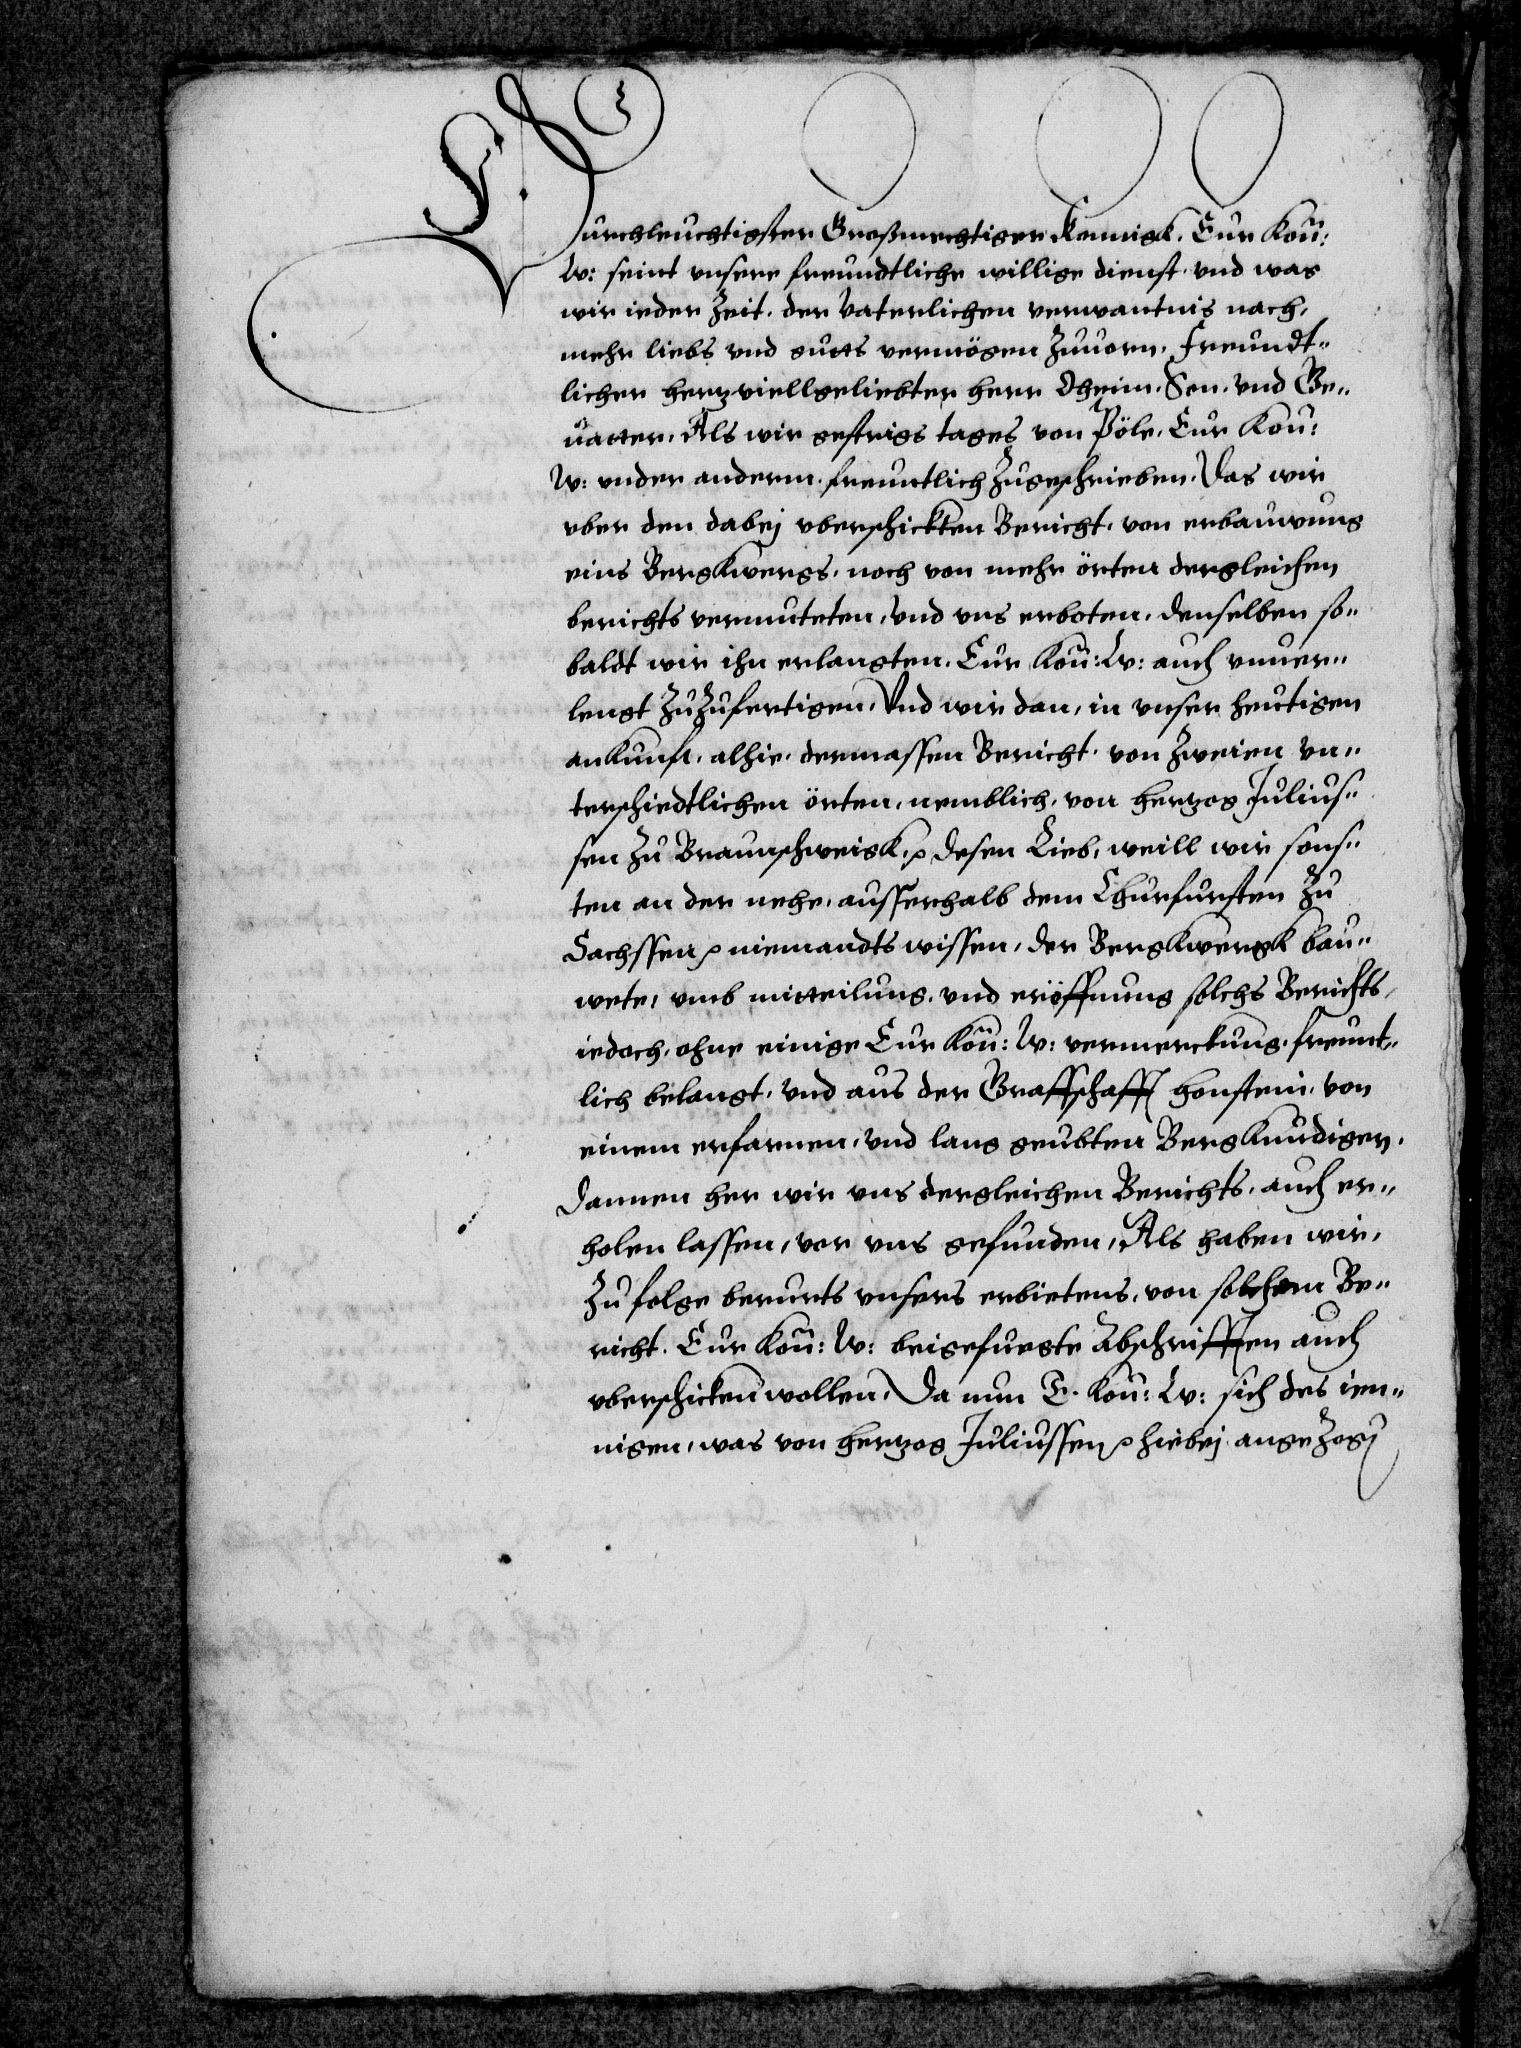 Durchleuchtigster Großmechtiger Konnigk. Eur Kön:
W: seint unsere freundtliche willige dienst und was
wir ieder Zeit, der Vaterlichen verwantnis nach,
mehr liebs und gutts vermögen zuuorn, Freundt-
licher hertzviellgeliebter herr Oheim, Son, und Ge-
uatter, Als wir gestrigs tages von Pöle, Eur Kön:
W: under anderm, freuntlich zugeschrieben, Das wir
uber den dabej uberschickten Bericht, von erbauwung
eins Bergkwergs, noch von mehr örten dergleichen
berichts vermuteten, und uns erboten, denselben so-
baldt wir ihn erlangten, Eur Kön: W: auch unuer-
lengt zuzufertigen, Und wir dan, in unser heutigen
ankunft, alhie, dermassen Bericht, von zweien un-
terschiedtlichen örten, nemblich, von hertzog Julius-
sen zu Braunschweigk, desen Lieb, weill wir sons-
ten an der nehe, ausserhalb dem Churfursten zu
Sachssen niemandts wissen, der Bergkwergk bau-
wete, umb mitteilung, und eröffnung solchs Berichts,
iedoch, ohne einige Eur Kön: W: vermerckung, freunt-
lich belangt, und aus der Graffschafft honstein, von
einem erfarnen, und lang geubten Bergkundigen,
dannen her wir uns dergleichen Berichts, auch er-
holen lassen, vor uns gefunden, Als haben wir,
zu folge berurts unsers erbietens, von solchem Be-
richt, Eur Kön: W: beigefuegte Abschrifften auch
uberschicken wollen, Da nun E. Kön: W: sich des ien-
nigen, was von hertzog Juliussen hiebej angezogen